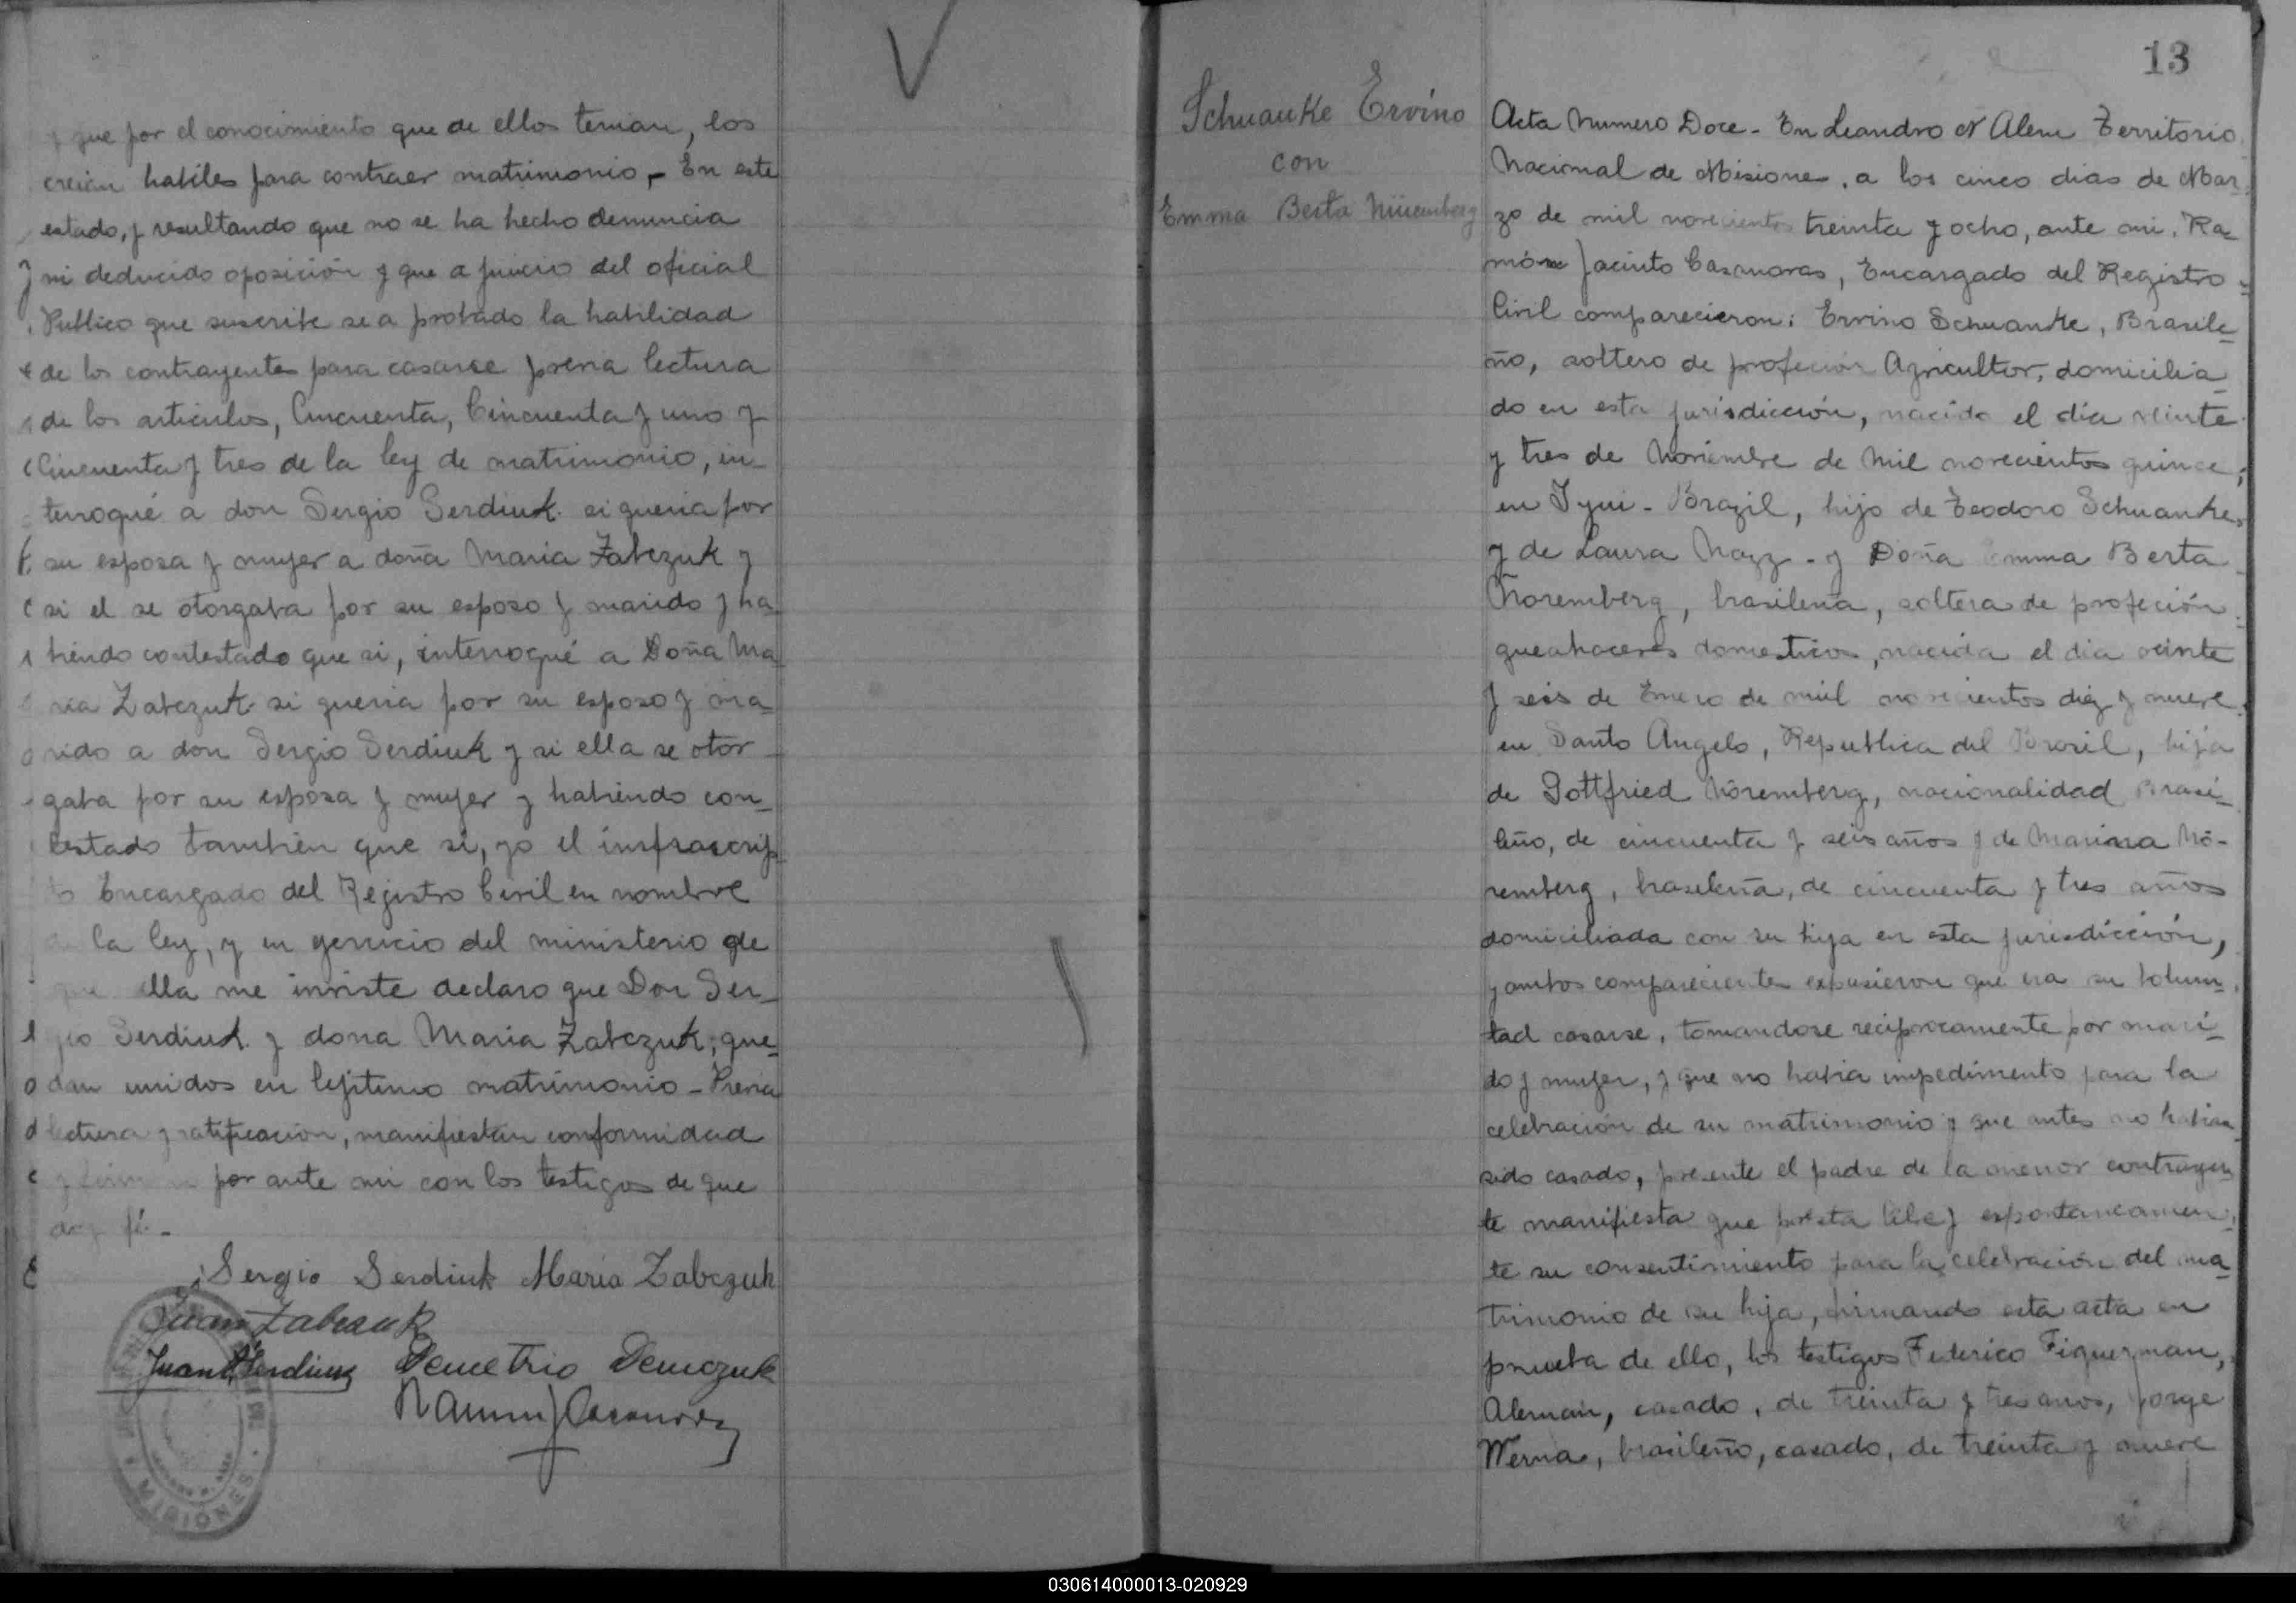 y que por el conocimiento que de ellos tenian, los
creian habiles para contraer matrimonio,- En este
estado, y resultando que no se ha hecho denuncia
ni deducido oposición y que a juicio del oficial
Publico que suscribe se a probado la habilidad
de los contrayentes para casarse previa lectura
de los articulos, Cincuenta, Cincuenta y uno y
Cincuenta y tres de la ley de matrimonio, in-
terroqué a don Sergio Serdiuk si queria por
su esposa y mujer a doña Maria Zabczuk y
si el se otorgaba por su esposo y marido y ha-
biendo contestado que si, interroqué a Doña Ma-
ria Zabczuk si queria por su esposo y ma-
rido a don Sergio Serdiuk y si ella se otor-
gaba por su esposa y mujer y habiendo con-
testado también que si, yo el infrascrip-
to Encargado del Registro Civil en nombre
de la ley, y en gercicio del ministerio de
que ella me inviste declaro que Don Ser-
gio Serdiuk y dona Maria Zabczuk, que-
dan unidos en lejitimo matrimonio - Previa
lectura y ratificación, manifiestan conformidad
por ante mi con los testigos de que
doy fé.-
Sergio Serdiuk Maria Zabczuk
Juan Zabczuk
Juan Serdiuk Demetrio Demczuk
MISIONES
13
Schuanke Ervino
con
Emma Berta Nüremberg
Acta Numero Doce - En Leandro N Alem Territorio
Nacional de Misiones, a los cinco dias de Mar-
zo de mil novecientos treinta y ocho, ante mi, Ra-
món Jacinto Casanovas, Encargado del Registro
Civil comparecieron: Ervino Schuanke, Brasile-
ño, soltero de profeción Agricultor, domicilia-
do en esta jurisdicción, nacido el día veinte
y tres de Noviembre de Mil novecientos quince,
en Iyui - Brazil, hijo de Teodoro Schuanke,
y de Laura Nazz - y Doña Emma Berta
Noremberg, brasileña, soltera de profeción
queahaceres domesticos, nacida el dia veinte
y seis de Enero de mil novecientos diez y nueve
en Santo Angelo, Republica del Brasil, hija
de Gottfried Nöremberg, nacionalidad Brasi-
leño, de cincuenta y seis años y de Marina Nö-
remberg, brasileña, de cincuenta y tres años
domiciliada con su hija en esta jurisdicción,
y ambos comparecientes expusieron que era su volun-
tad casarse, tomandose reciprocamente por mari-
do y mujer, y que no habia impedimento para la
celebración de su matrimonio y que antes no habian
sido casado, presente el padre de la menor contrayen-
te manifiesta que presta libre y espontaneamen-
te su consentimiento para la celebración del ma-
trimonio de su hija, firmando esta acta en
prueba de ello, los testigos Federico Fiquerman,
Aleman, casado, de treinta y tres anos, Jorge
Werna, brasileño, casado, de treinta y nueve
030614000013-020929